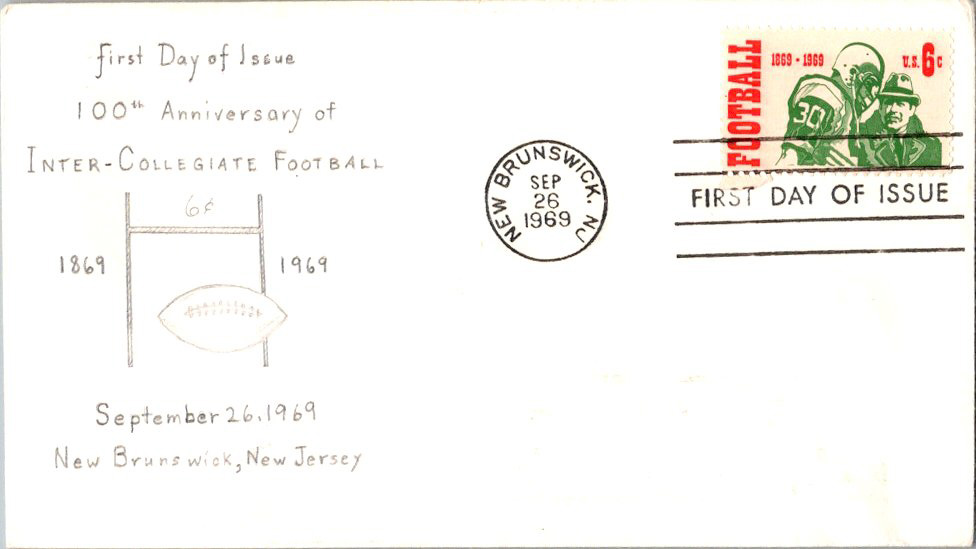 first Day of Issue
100th Anniversary of
INTER-COLLEGIATE FOOTBALL
6¢
1869 1969
September 26, 1969
New Brunswick, New Jersey
NEW BRUNSWICK, NJ
SEP
26
1969
FOOTBALL
1869 - 1969
U.S. 6c
30
FIRST DAY OF ISSUE